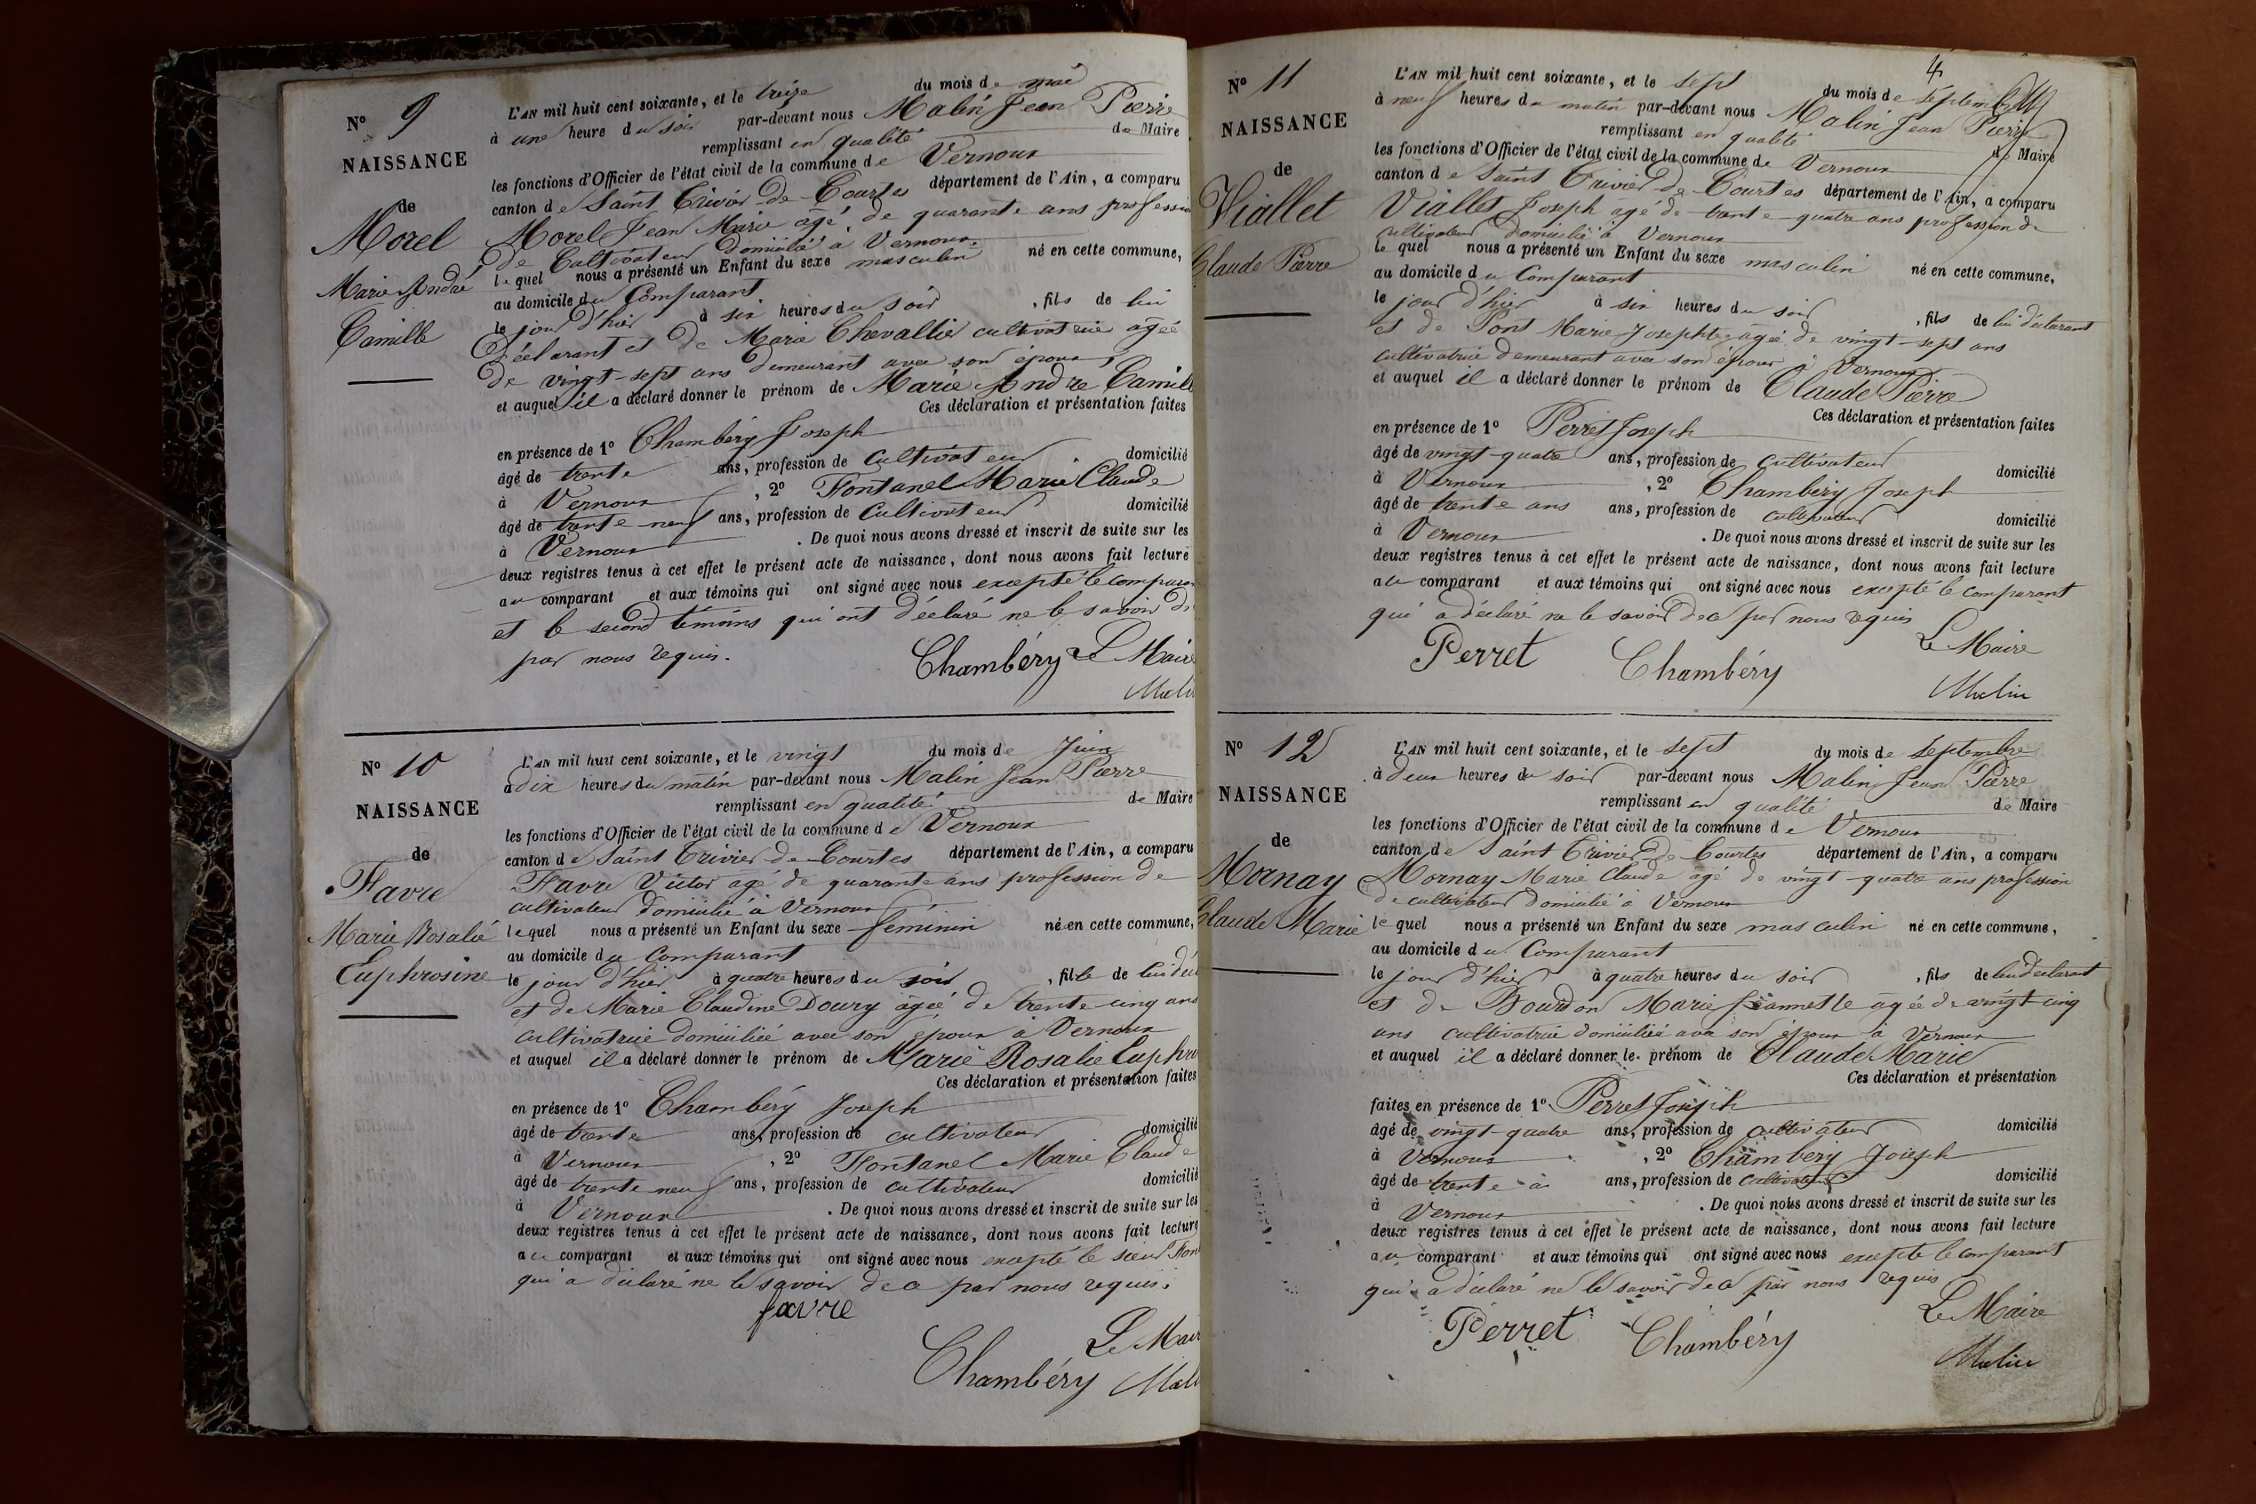 N° 9
NAISSANCE
de
Morel
Marie André
Camille
L'AN mil huit cent soixante, et le treize du mois de mai
à une heure du soir par-devant nous Malin Jean Pierre
remplissant en qualité de Maire
les fonctions d'Officier de l'état civil de la commune de Vernoux
canton de Saint Trivier de Courtes département de l'Ain, a comparu
Morel Jean Marie âgé de quarante ans profession
de Cultivateur domicilié à Vernoux
lequel nous a présenté un Enfant du sexe masculin né en cette commune,
au domicile du Comparant
le jour d'hier à six heures du soir , fils de lui
Déclarant et de Marie Chevallier cultivatrice agée
de vingt-sept ans demeurant avec son époux,
et auquel il a déclaré donner le prénom de Marie André Camill
Ces déclaration et présentation faites
en présence de 1° Chambéry Joseph
âgé de trente ans, profession de Cultivateur domicilié
à Vernoux , 2° Fontanel Marie Claude
âgé de trente neuf ans, profession de Cultivateur domicilié
à Vernoux . De quoi nous avons dressé et inscrit de suite sur les
deux registres tenus à cet effet le présent acte de naissance, dont nous avons fait lecture
au comparant et aux témoins qui ont signé avec nous excepté le comparan
et le second témoins qui ont déclaré ne le savoir de
par nous requis.
Chambéry Le Maire
Malin
N° 10
NAISSANCE
de
Favre
Marie Rosalie
Euphrosine
L'AN mil huit cent soixante, et le vingt du mois de Juin
à dix heures du matin par-devant nous Malin Jean Pierre
remplissant en qualité de Maire
les fonctions d'Officier de l'état civil de la commune de Vernoux
canton de Saint Trivier de Courtes département de l'Ain, a comparu
Favre Victor agé de quarante ans profession de
cultivateur domicilié à Vernoux
lequel nous a présenté un Enfant du sexe féminin né en cette commune,
au domicile du Comparant
le jour d'hier à quatre heures du soir , fille de lui dé
et de Marie Claudine Doury agée de trente cinq ans
cultivatrice domiciliée avec son époux à Vernoux
et auquel il a déclaré donner le prénom de Marie Rosalie Euphro
Ces déclaration et présentation faites
en présence de 1° Chambéry Joseph
âgé de trente ans, profession de cultivateur domicilié
à Vernoux , 2° Fontanel Marie Claude
âgé de trente neuf ans, profession de cultivateur domicilié
à Vernoux . De quoi nous avons dressé et inscrit de suite sur les
deux registres tenus à cet effet le présent acte de naissance, dont nous avons fait lecture
au comparant et aux témoins qui ont signé avec nous excepté le sieur Fon
qui a déclaré ne le savoir de ce par nous requis.
favre
Le Mair
Chambéry Mali
4
N° 11
NAISSANCE
de
Viallet
Claude Pierre
L'AN mil huit cent soixante, et le sept du mois de septembre
à neuf heures du matin par-devant nous Malin Jean Pierre
remplissant en qualité de Maire
les fonctions d'Officier de l'état civil de la commune de Vernoux
canton de Saint Trivier de Courtes département de l'Ain, a comparu
Viallet Joseph agé de trente-quatre ans profession de
cultivateur domicilié à Vernoux
le quel nous a présenté un Enfant du sexe masculin né en cette commune,
au domicile du Comparant
le jour d'hier à six heures du soir , fils de lui déclarant
et de Pont Marie Josephte agée de vingt-sept ans
cultivatrice demeurant avec son époux à Vernoux
et auquel il a déclaré donner le prénom de Claude Pierre
Ces déclaration et présentation faites
en présence de 1° Perret Joseph
âgé de vingt-quatre ans, profession de cultivateur domicilié
à Vernoux , 2° Chambéry Joseph
âgé de trente ans ans, profession de cultivateur domicilié
à Vernoux . De quoi nous avons dressé et inscrit de suite sur les
deux registres tenus à cet effet le présent acte de naissance, dont nous avons fait lecture
au comparant et aux témoins qui ont signé avec nous excepté le comparant
qui a déclaré ne le savoir de ce par nous requis
Perret Chambéry Le Maire
Malin
N° 12
NAISSANCE
de
Mornay
Claude Marie
L'AN mil huit cent soixante, et le sept du mois de septembre
à deux heures du soir par-devant nous Malin Jean Pierre
remplissant en qualité de Maire
les fonctions d'Officier de l'état civil de la commune de Vernoux
canton de Saint Trivier de Courtes département de l'Ain, a comparu
Mornay Marie Claude agé de vingt-quatre ans profession
de cultivateur domicilié à Vernoux
le quel nous a présenté un Enfant du sexe masculin né en cette commune,
au domicile du Comparant
le jour d'hier à quatre heures du soir , fils de lui déclarant
et de Bourdon Marie Jeannette agée de vingt-cinq
ans cultivatrice domiciliée avec son époux à Vernoux
et auquel il a déclaré donner le prénom de Claude Marie
Ces déclaration et présentation
faites en présence de 1° Perret Joseph
âgé de vingt-quatre ans, profession de cultivateur domicilié
à Vernoux , 2° Chambéry Joseph
âgé de trente ans, profession de cultivateur domicilié
à Vernoux . De quoi nous avons dressé et inscrit de suite sur les
deux registres tenus à cet effet le présent acte de naissance, dont nous avons fait lecture
au comparant et aux témoins qui ont signé avec nous excepté le comparant
qui a déclaré ne le savoir de ce par nous requis
Perret Chambéry Le Maire
Malin